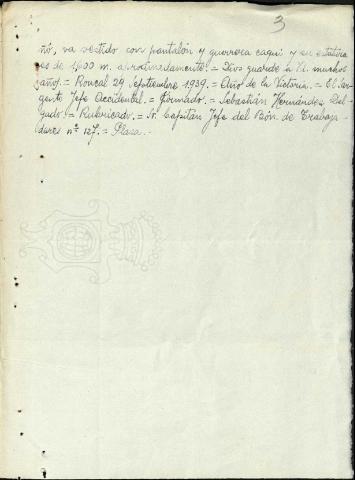 3
ñó, va vestido con pantalón y guerrera caqui y su estatura
es de 1,600 m. aproximadamente.= Dios guarde a Vd. muchos
años.= Roncal 29 Septiembre 1939.= Año de la Victoria.= El Sar-
gento Jefe Accidental.= Firmado.= Sebastián Hernández Del-
gado.= Rubricado.= Sr. Capitán Jefe del Bón. de Trabaja-
dores nº 127.= Plaza.-